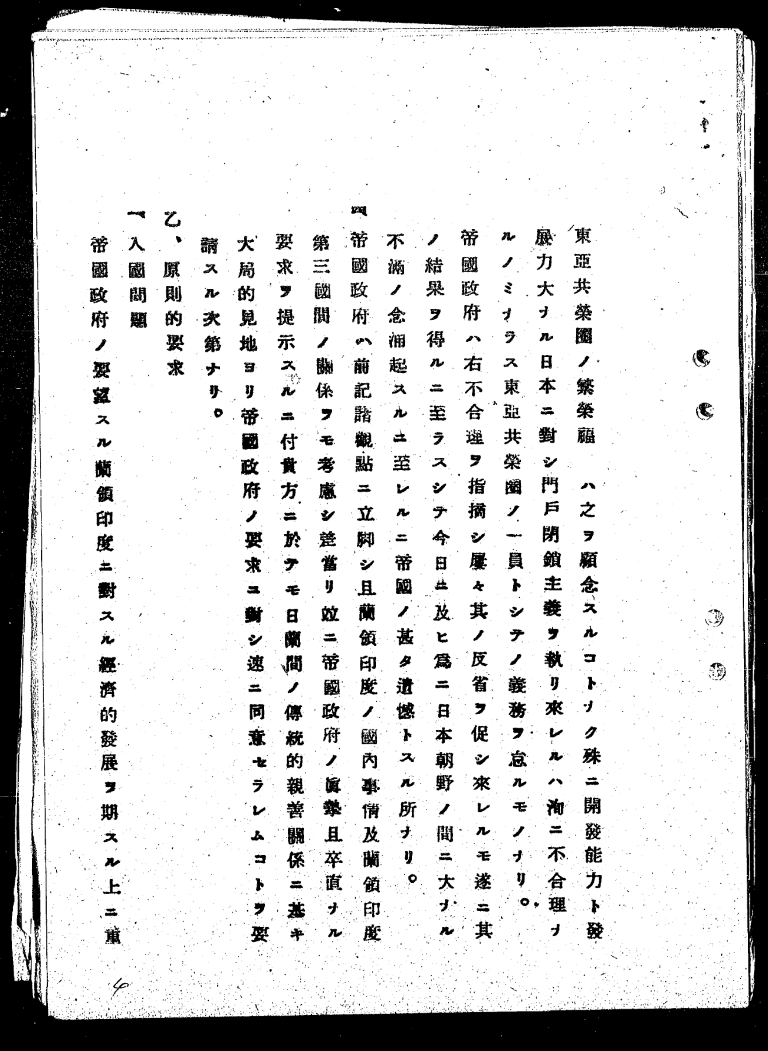 東亞共榮圈ノ繁榮福　ハ之ヲ顧念スルコトナク殊ニ開發能力ト發
展力大ナル日本ニ對シ門戶閉鎖主義ヲ執リ來レルハ洵ニ不合理ナ
ルノミナラス東亞共榮圈ノ一員トシテノ義務ヲ忘ルモノナリ。
帝國政府ハ右不合理ヲ指摘シ屢々其ノ反省ヲ促シ來レルモ遂ニ其
ノ結果ヲ得ルニ至ラスシテ今日ニ及ヒ爲ニ日本朝野ノ間ニ大ナル
不滿ノ念涌起スルニ至レルニ帝國ノ甚タ遺憾トスル所ナリ。
四 帝國政府ハ前記諸觀點ニ立脚シ且蘭領印度ノ國內事情及蘭領印度
第三國間ノ關係ヲモ考慮シ差當リ竝ニ帝國政府ノ眞摯且卒直ナル
要求ヲ提示スルニ付貴方ニ於テモ日蘭間ノ傳統的親善關係ニ基キ
大局的見地ヨリ帝國政府ノ要求ニ對シ速ニ同意セラレムコトヲ要
請スル次第ナリ。
乙、原則的要求
一、入國問題
帝國政府ノ要望スル蘭領印度ニ對スル經濟的發展ヲ期スル上ニ重
4